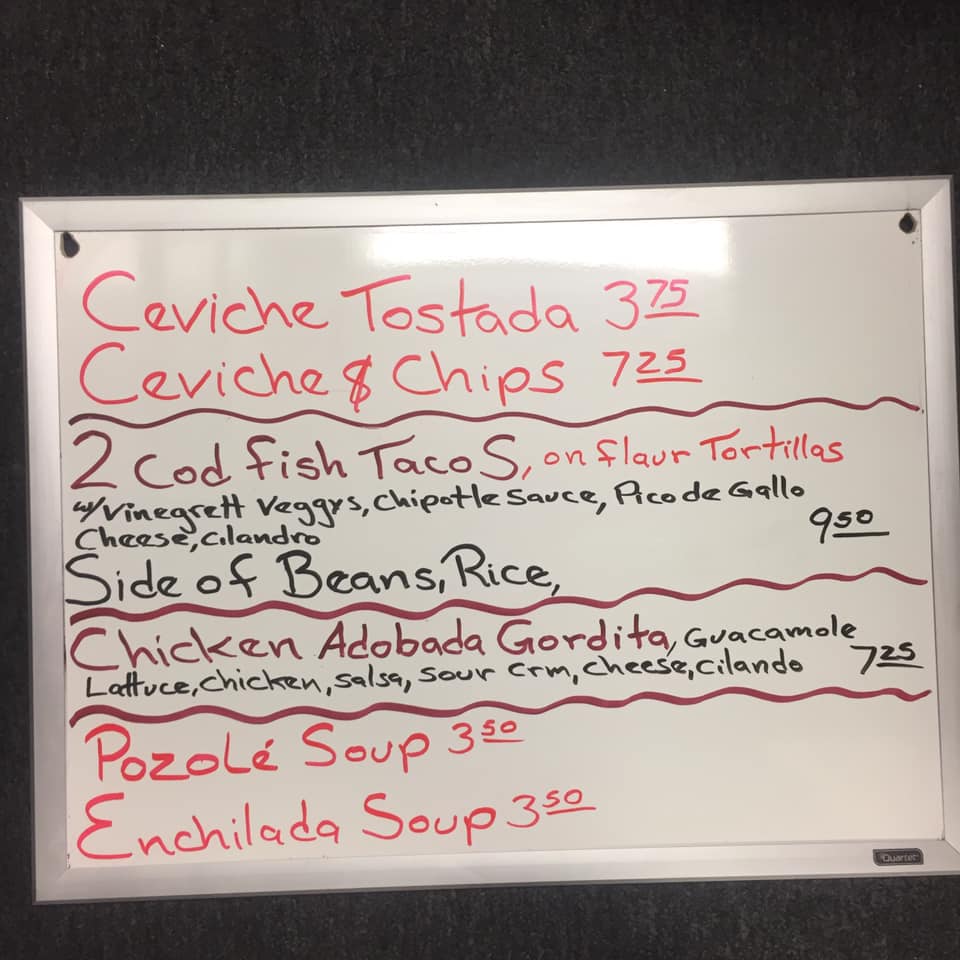 Ceviche Tostada 3 75
Ceviche & Chips 7 25
2 Cod fish Tacos, on flaur Tortillas
w/Vinegrett Veggys, Chipotle Sauce, Pico de Gallo
Cheese, Cilandro
9 50
Side of Beans, Rice,
Chicken Adobada Gordita, Guacamole
Lattuce, Chicken, Salsa, Sour Crm, Cheese, Cilando 7 25
Pozolé Soup 3 50
Enchilada Soup 3 50
Quartet